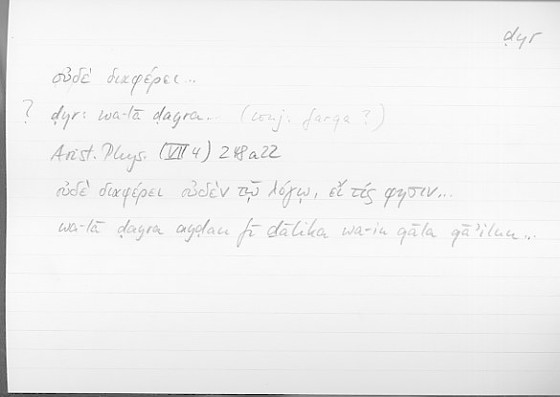 ḍyr
οὐδὲ διαφέρει...
? ḍyr: wa-lā ḍayra... (conj. farqa?)
Arist. Phys. (VII 4) 248a22
οὐδὲ διαφέρει οὐδὲν τῷ λόγῳ, εἴ τίς φησιν...
wa-lā ḍayra ayḍan fī ḏālika wa-in qāla qāʾilun...